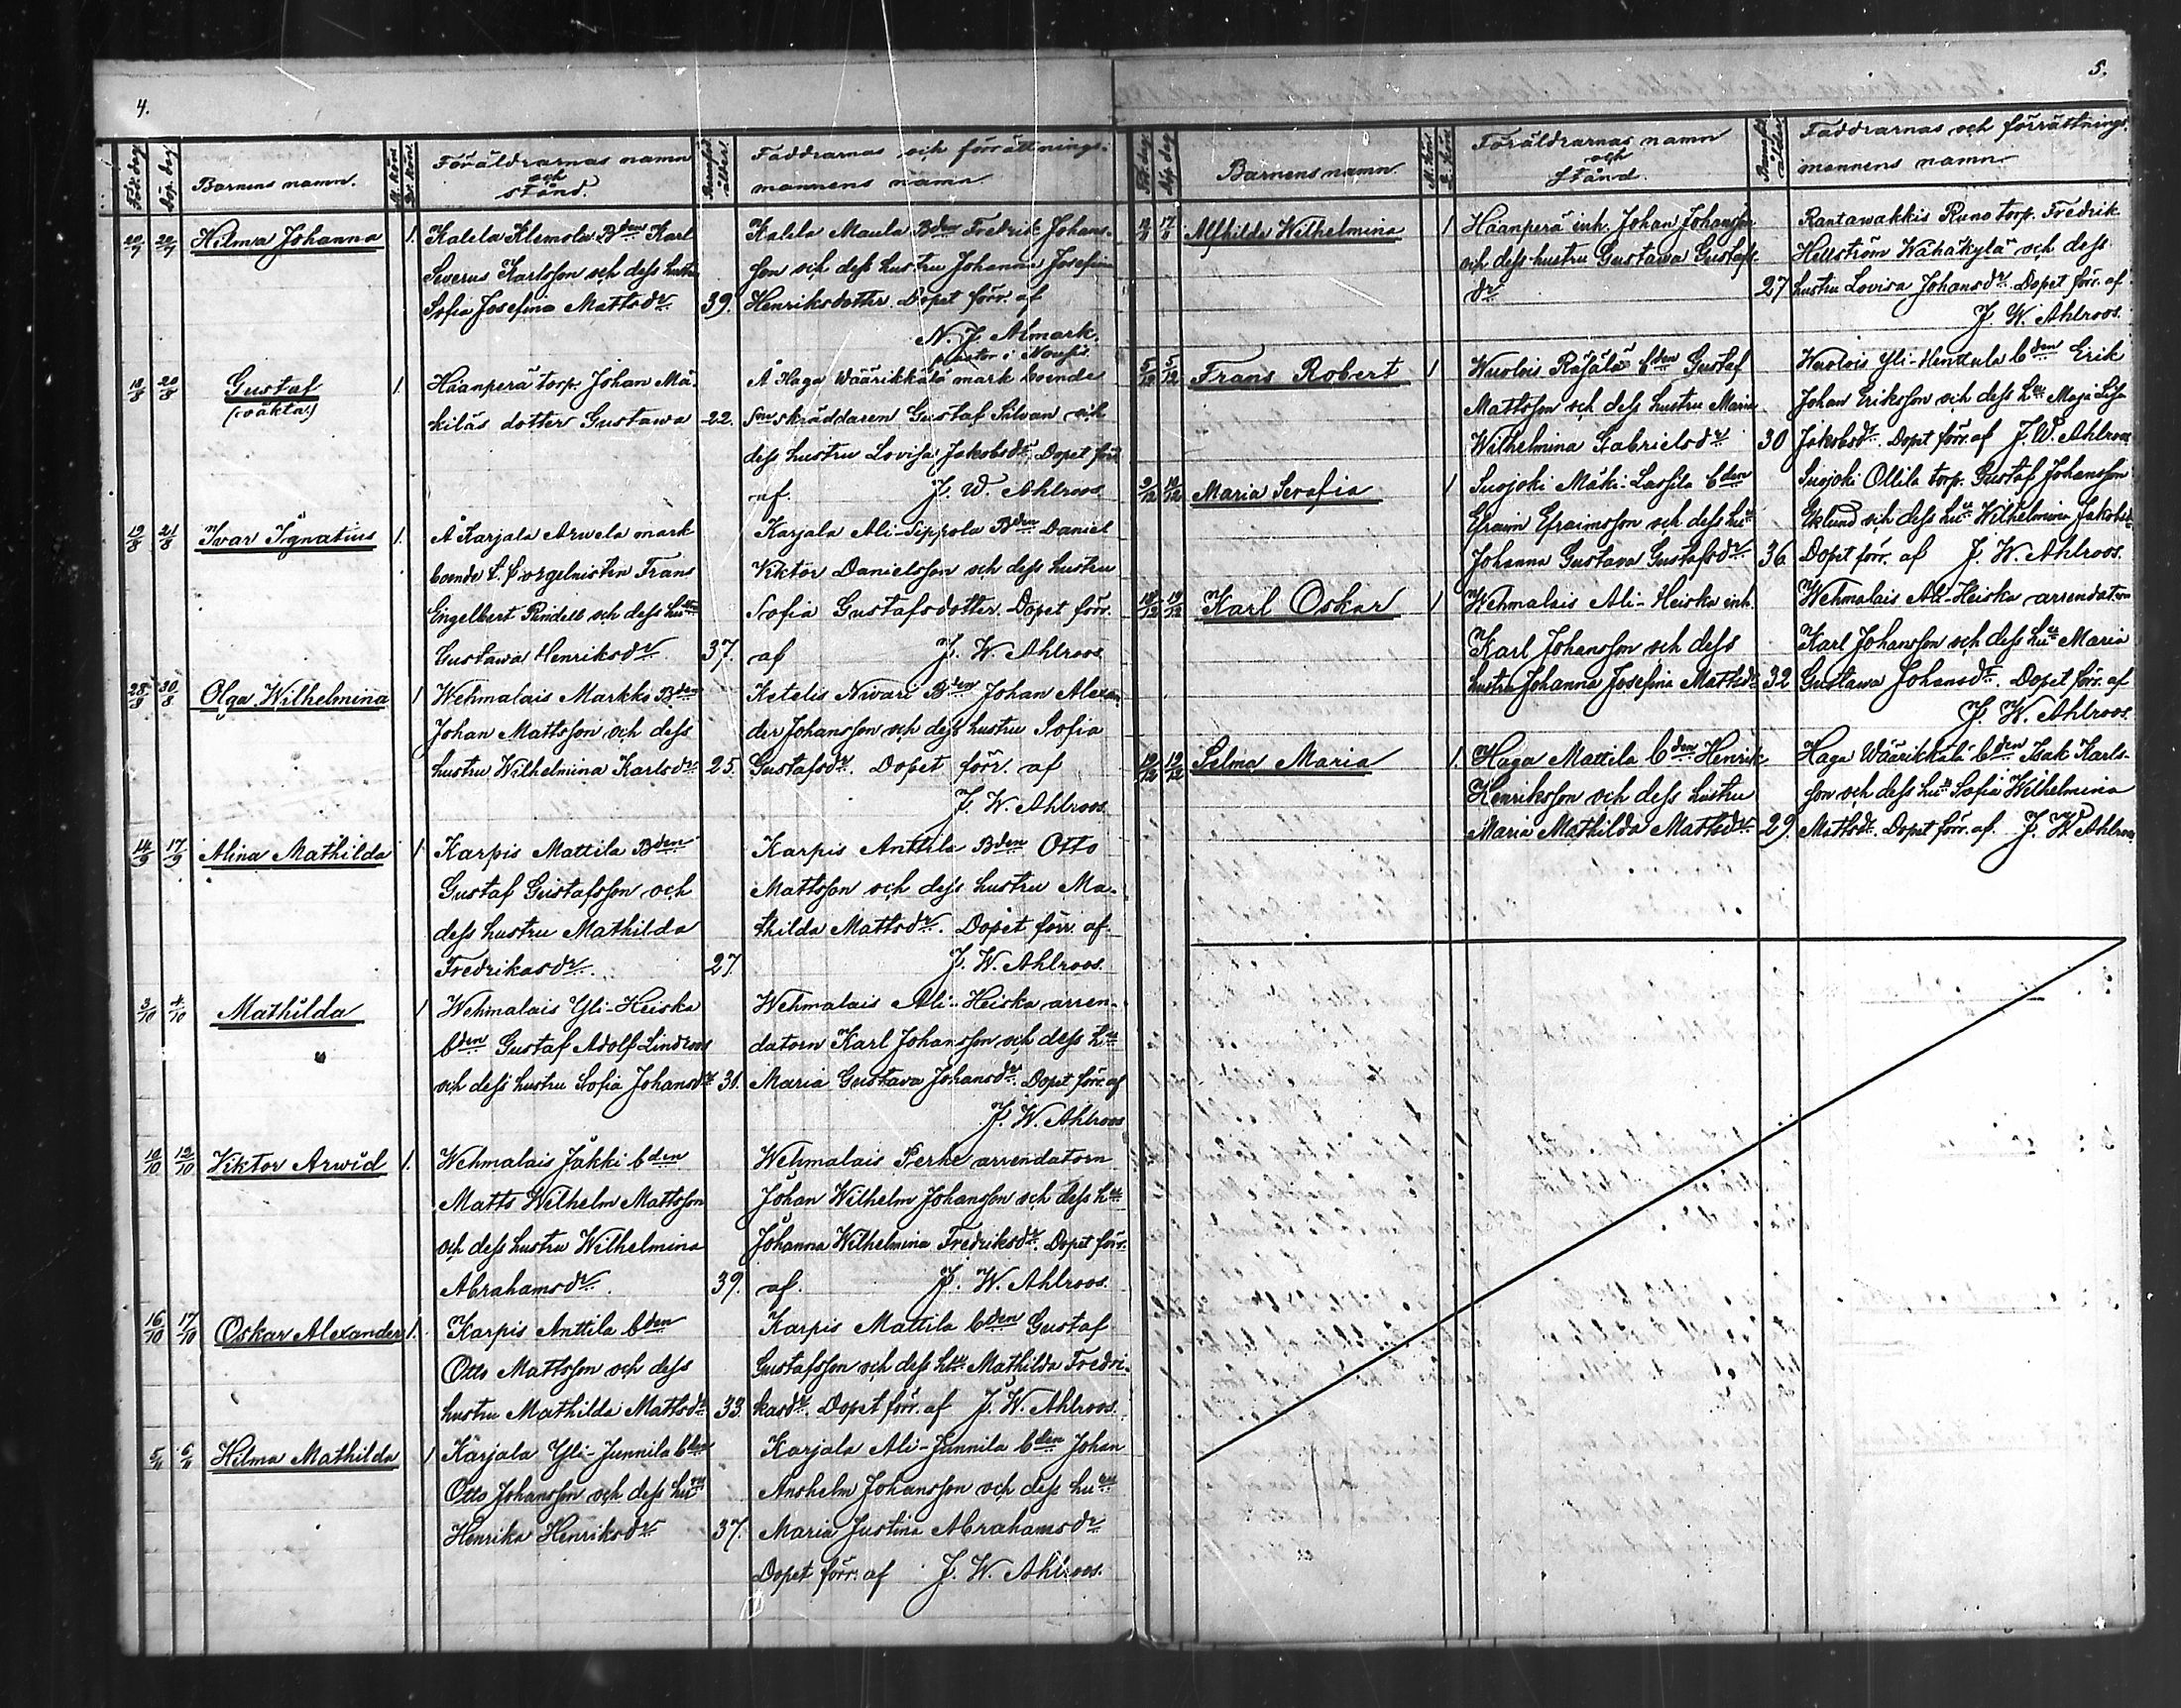 4.
Föd. dag
Döp. dag
Barnens namn.
M. kön
Qv. kön.
Föräldrarnas namn
och
stånd.
Faddrarnas och förrättnings-
mannens namn
20/7 20/7 Hilma Johanna 1. Kalela Klemola Bden Karl
Severus Karlsson och dess hustru
Sofia Josefina Mattsdr 39.
Kalela Maula Bden Fredrik Johans-
son och dess hustru Johanna Josefina
Henriksdotter. Dopet förr. af
N. J. Almark.
pastor i Nousis.
18/8 20/8 Gustaf 1
(oäkta)
Häänperä torp. Johan Mä-
kiläs dotter Gustawa 22.
Å Haga Wäärikkälä mark boende
Snskräddaren Gustaf Silvan och
dess hustru Lovisa Jakobsdr. Dopet förr
af J. W. Ahlroos
19/8 21/8 Ivar Ignatius 1.
Å Karjala Arwela mark
boende t. f. orgelnisten Frans
Engelbert Rindell och dess hu
Gustawa Henriksdr. 37.
Karjala Ali-Sippola Bden Daniel
Viktor Danielsson och dess hustru
Sofia Gustafsdotter. Dopet förr.
af J. W. Ahlroos
28/8 30/8 Olga Wilhelmina 1
Wehmalais Markka Bden
Johan Mattsson och dess
hustru Wilhelmina Karlsdr 25.
Ketelis Nivari Bden Johan Alexan-
der Johansson och dess hustru Sofia
Gustafsdr. Dopet förr. af
J. W. Ahlroos.
14/9 17/9 Alina Mathilda 1
Karpis Mattila Bden
Gustaf Gustafsson och
dess hustru Mathilda
Fredrikasdr. 27.
Karpis Anttila Bden Otto
Mattsson och dess hustru Ma-
thilda Mattsdr. Dopet förr. af
J. W. Ahlroos.
3/10 4/10 Mathilda 1
Wehmalais Yli-Heiska
bden Gustaf Adolf Lindroos
och dess hustru Sofia Johansdr 30.
Wehmalais Ali-Heiska arren-
datorn Karl Johansson och dess hu
Maria Gustava Johansdr. Dopet förr. af
J. W. Ahlroos
10/10 12/10 Viktor Arwid 1.
Wehmalais Jakki bden
Matts Wilhelm Mattsson
och dess hustru Wilhelmina
Abrahamsdr. 39.
Wehmalais Perhe arrendatorn
Johan Wilhelm Johansson och dess hu
Johanna Wilhelmina Fredriksdr. Dopet förr.
af. J. W. Ahlroos.
16/10 17/10 Oskar Alexander 1.
Karpis Anttila bden
Otto Mattsson och dess
hustru Mathilda Mattsdr 33.
Karpis Mattila bden Gustaf
Gustafsson och dess hu Mathilda Fredri-
kasdr. Dopet förr. af J. W. Ahlroos.
5/11 6/11 Hilma Mathilda 1
Karjala Yli-Junnila bden
Otto Johansson och dess hu
Henrika Henriksdr 37.
Karjala Ali-Junnila bden Johan
Anshelm Johansson och dess hu
Maria Justina Abrahamsdr
Dopet förr. af J. W. Ahlroos.
5.
Föd. dag
Döp. dag
Barnens namn
M. kön
Q. kön
Föräldrarnas namn
och
stånd.
Faddrarnas och förrättnings-
mannens namn
17/11 Alfhilda Wilhelmina 1
Häänperä inh. Johan Johansson
och dess hustru Gustawa Gustafs-
dr 27
Rantawakkis Runo torp. Fredrik
Hellström Wähäkylä och dess
hustru Lovisa Johansdr. Dopet förr. af
J. W. Ahlroos.
5/12 5/12 Frans Robert 1
Wuolois Räjälä bden Gustaf
Mattsson och dess hustru Maria
Wilhelmina Gabrielsdr 30
Wuolois Yli-Henttula bden Erik
Johan Eriksson och dess hu Maja Lisa
Jakobsdr. Dopet förr. af J. W. Ahlroos.
9/12 10/12 Maria Serafia 1
Suojoki Mäki-Lassila bden
Efraim Efraimsson och dess hu
Johanna Gustava Gustafsdr 36.
Suojoki Ollila torp. Gustaf Johansson
Eklund och dess hu Wilhelmina Jakobsdr
Dopet förr. af J. W. Ahlroos.
18/12 19/12 Karl Oskar 1
Wehmalais Ali-Heiska inh.
Karl Johansson och dess
hustru Johanna Josefina Mattsdr 32
Wehmalais Ali-Heiska arrendatorn
Karl Johansson och dess hu Maria
Gustawa Johansdr. Dopet förr. af
J. W. Ahlroos.
19/12 19/12 Selma Maria 1.
Haga Mattila bden Henrik
Henriksson och dess hustru
Maria Mathilda Mattsdr 29.
Haga Wäärikkälä bden Isak Karls-
son och dess hu Sofia Wilhelmina
Mattsdr. Dopet förr. af. J. W. Ahlroos